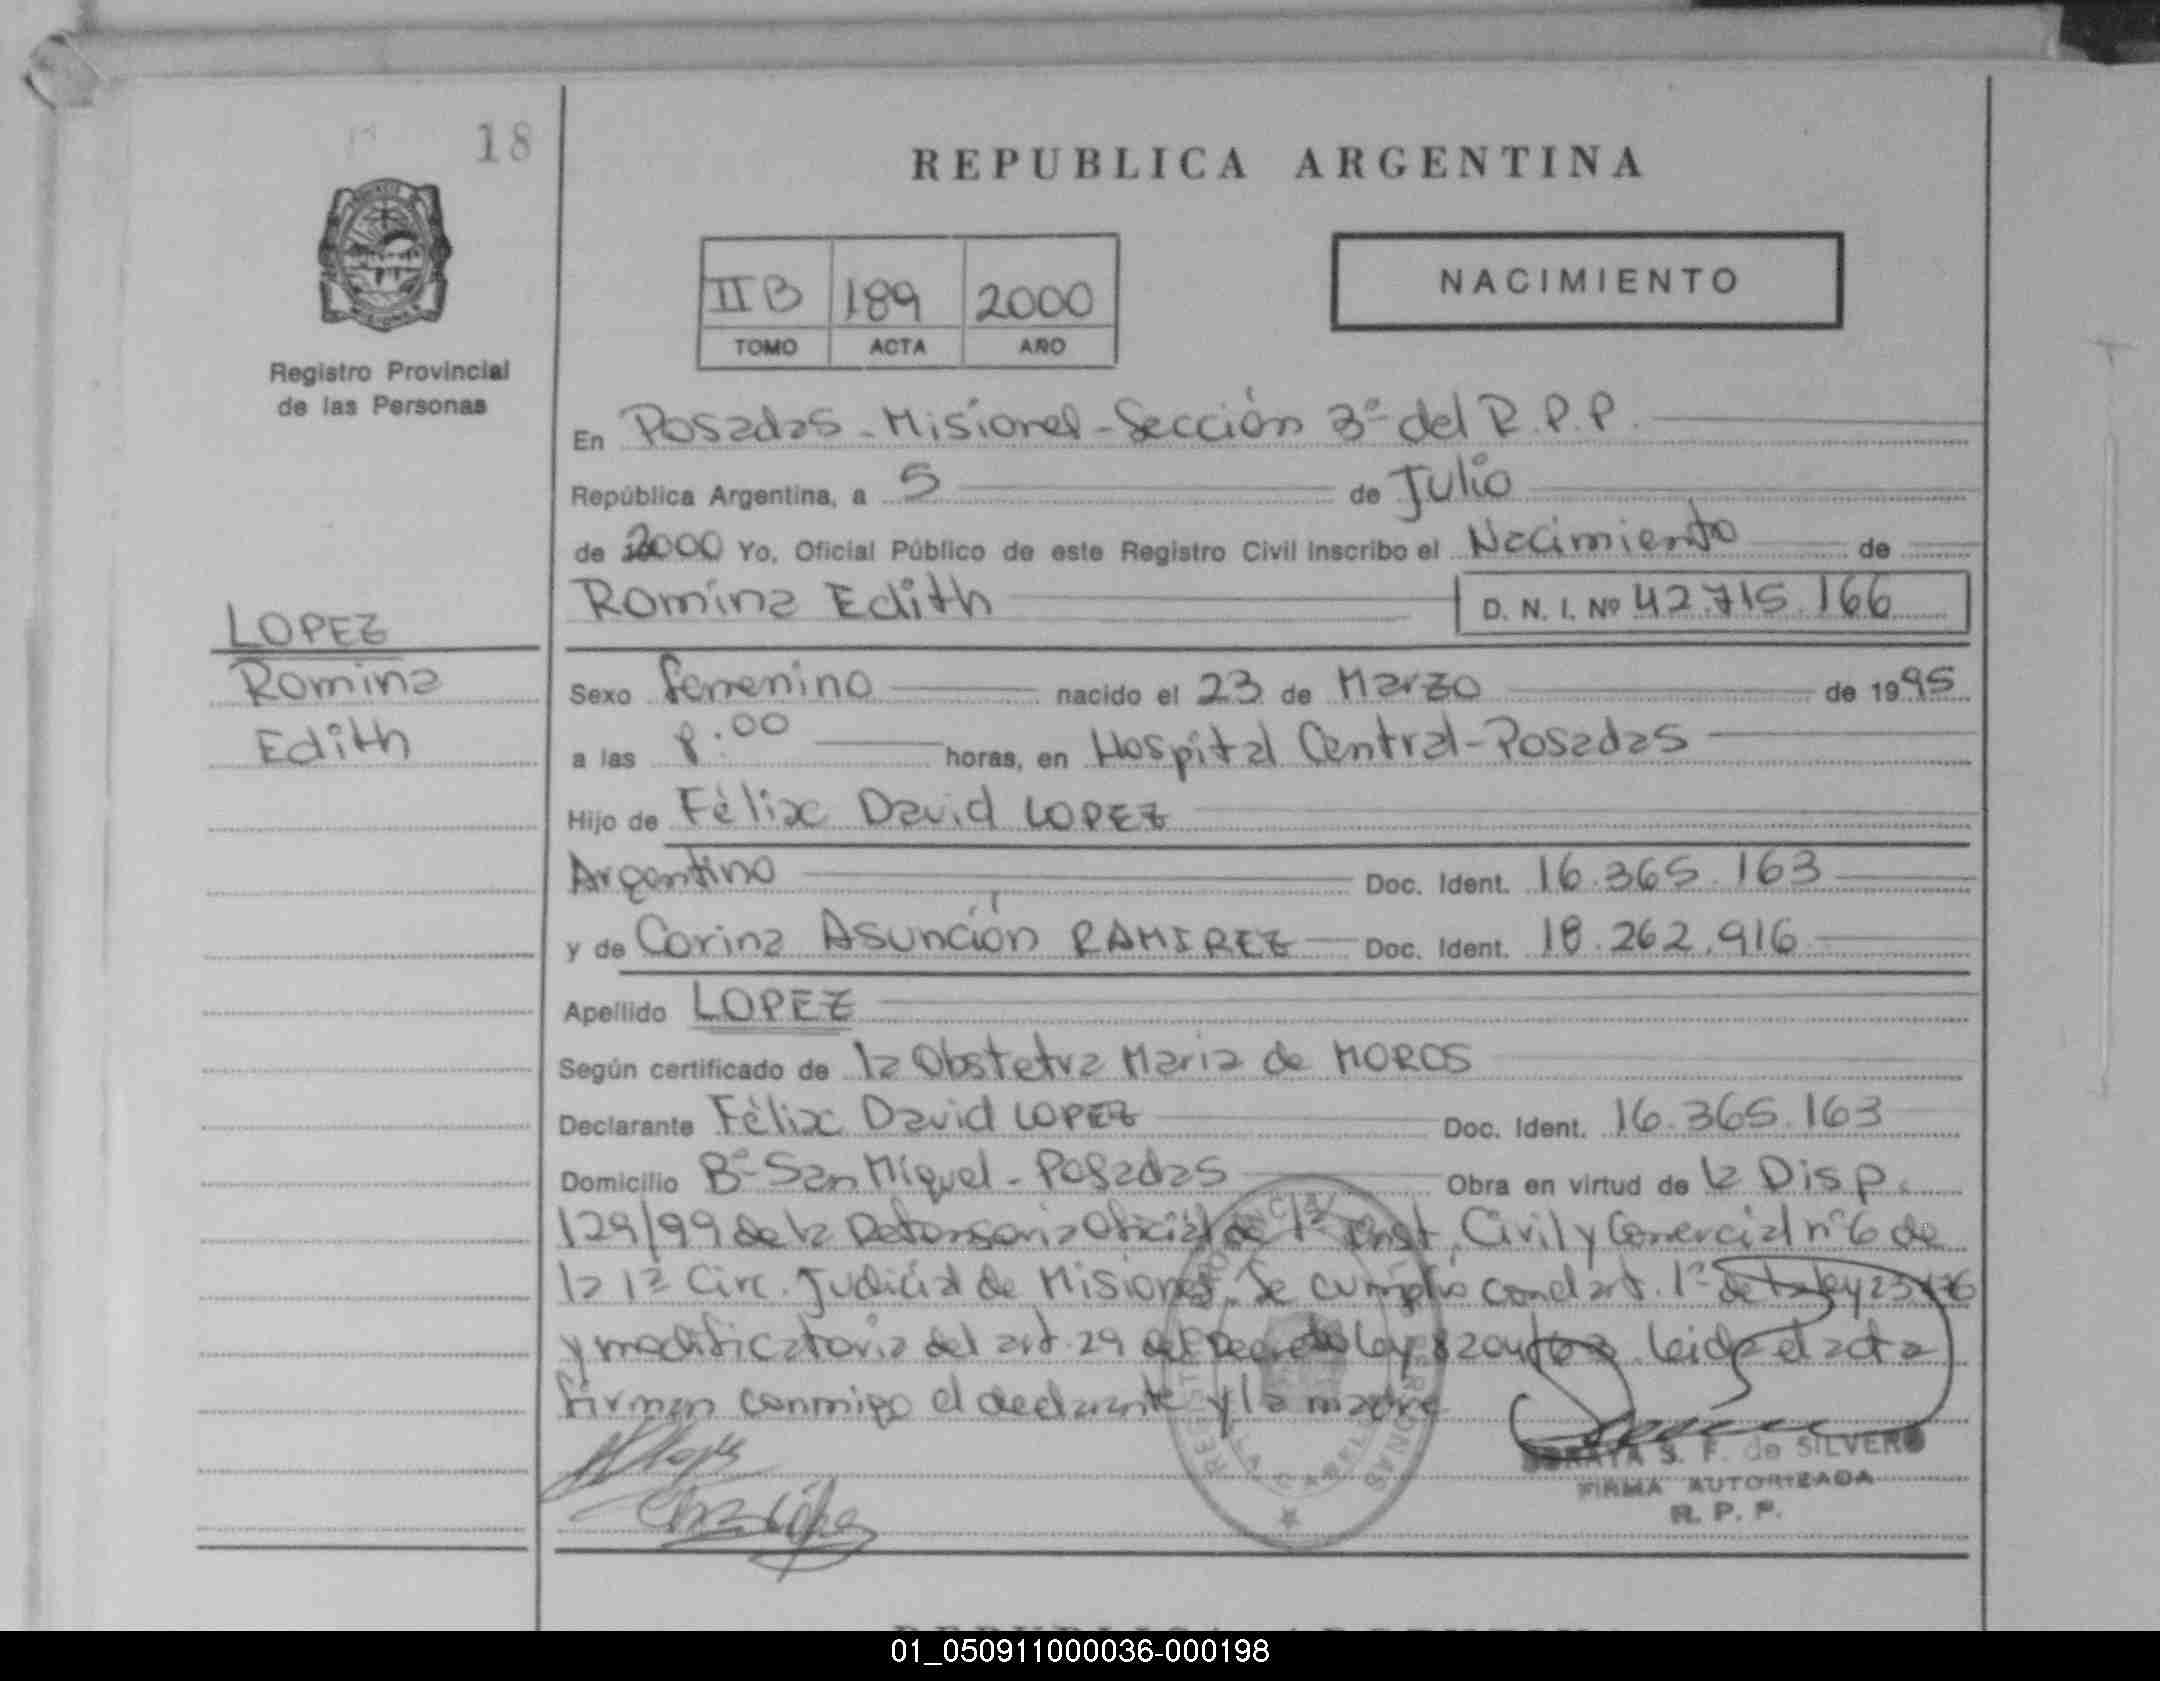 18
REPUBLICA ARGENTINA
NACIMIENTO
II B 189 2000
TOMO ACTA AÑO
Registro Provincial
de las Personas
En Posadas - Misiones - Sección 3ª del R.P.P.
República Argentina, a 5 de Julio
de 2000 Yo, Oficial Público de este Registro Civil inscribo el Nacimiento de
Romina Edith D. N. I. Nº 42.715.166
LOPEZ
Romina
Edith
Sexo femenino nacido el 23 de Marzo de 1995
a las 8:00 horas, en Hospital Central - Posadas
Hijo de Félix David LOPEZ
Argentino Doc. Ident. 16.365.163
y de Corina Asunción RAMIREZ Doc. Ident. 18.262.916
Apellido LOPEZ
Según certificado de la Obstetra Maria de MOROS
Declarante Félix David LOPEZ Doc. Ident. 16.365.163
Domicilio Bº San Miguel - Posadas Obra en virtud de la Disp.
129/99 de la Defensoria Oficial de 1ª Inst. Civil y Comercial nº 6 de
la 1ª Circ. Judicial de Misiones. Se cumplió con el art. 1º de la ley
y modificatoria del art. 29 del Decreto ley 8204/63 leida el acta
firman conmigo el declarante y la madre
S. F. de SILVERO
FIRMA AUTORIZADA
R. P. P.
01_050911000036-000198